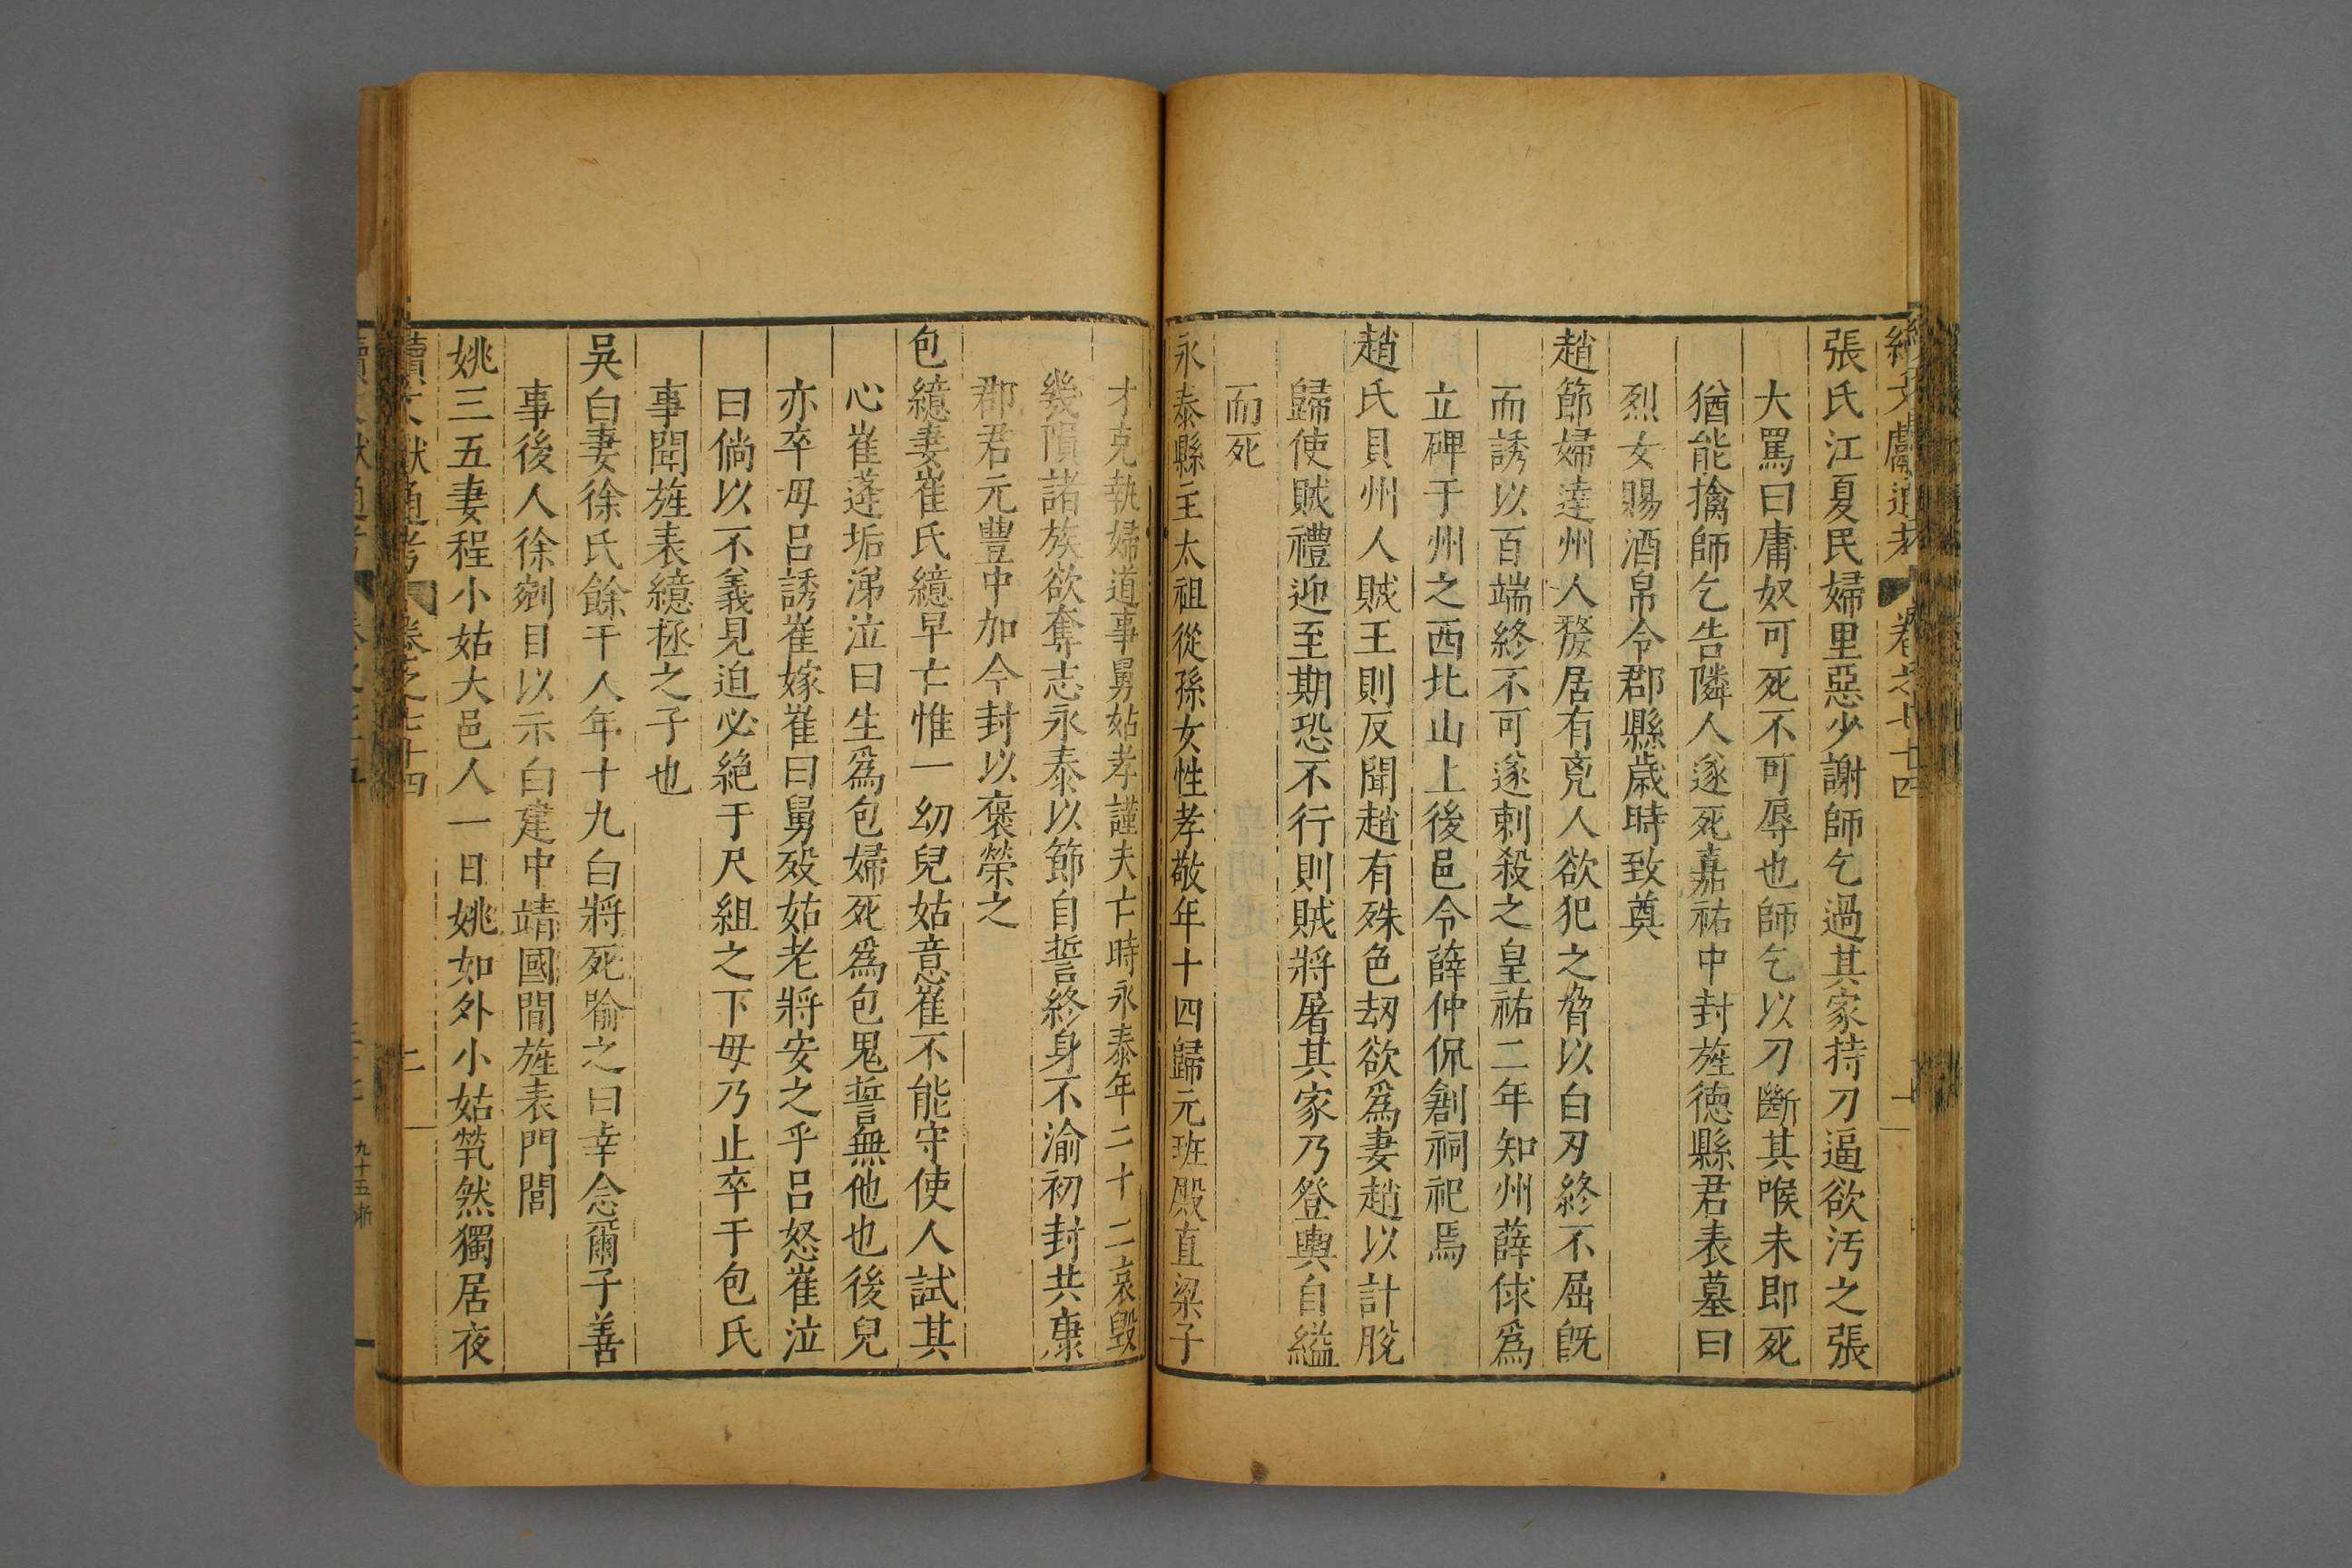 續文獻通考 卷之七十四
張氏江夏民婦里惡少謝師乞過其家持刀逼欲汚之張
大罵曰庸奴可死不可辱也師乞以刀斷其喉未即死
猶能擒師乞告隣人遂死嘉祐中封旌德縣君表墓曰
烈女賜酒帛令郡縣歲時致奠
趙節婦達州人嫠居有兇人欲犯之脅以白刃終不屈旣
而誘以百端終不可遂刺殺之皇祐二年知州薛俅爲
立碑于州之西北山上後邑令薛仲侃創祠祀焉
趙氏貝州人賊王則反聞趙有殊色刼欲爲妻趙以計脫
歸使賊禮迎至期恐不行則賊將屠其家乃登輿自縊
而死
永泰縣主太祖從孫女性孝敬年十四歸元班殿直梁子
才克執婦道事舅姑孝謹夫亡時永泰年二十二哀毀
幾隕諸族欲奪志永泰以節自誓終身不渝初封共康
郡君元豐中加今封以褒榮之
包繶妻崔氏繶早亡惟一幼兒姑意崔不能守使人試其
心崔蓬垢涕泣曰生爲包婦死爲包鬼誓無他也後兒
亦卒母呂誘崔嫁崔曰舅歿姑老將安之乎呂怒崔泣
曰倘以不義見迫必絶于尺組之下毋乃止卒于包氏
事聞旌表繶拯之子也
吳白妻徐氏餘干人年十九白將死喻之曰幸念爾子善
事後人徐剜目以示白建中靖國間旌表門閭
姚三五妻程小姑大邑人一日姚如外小姑煢然獨居夜
續文獻通考 卷之七十四 二
九十五